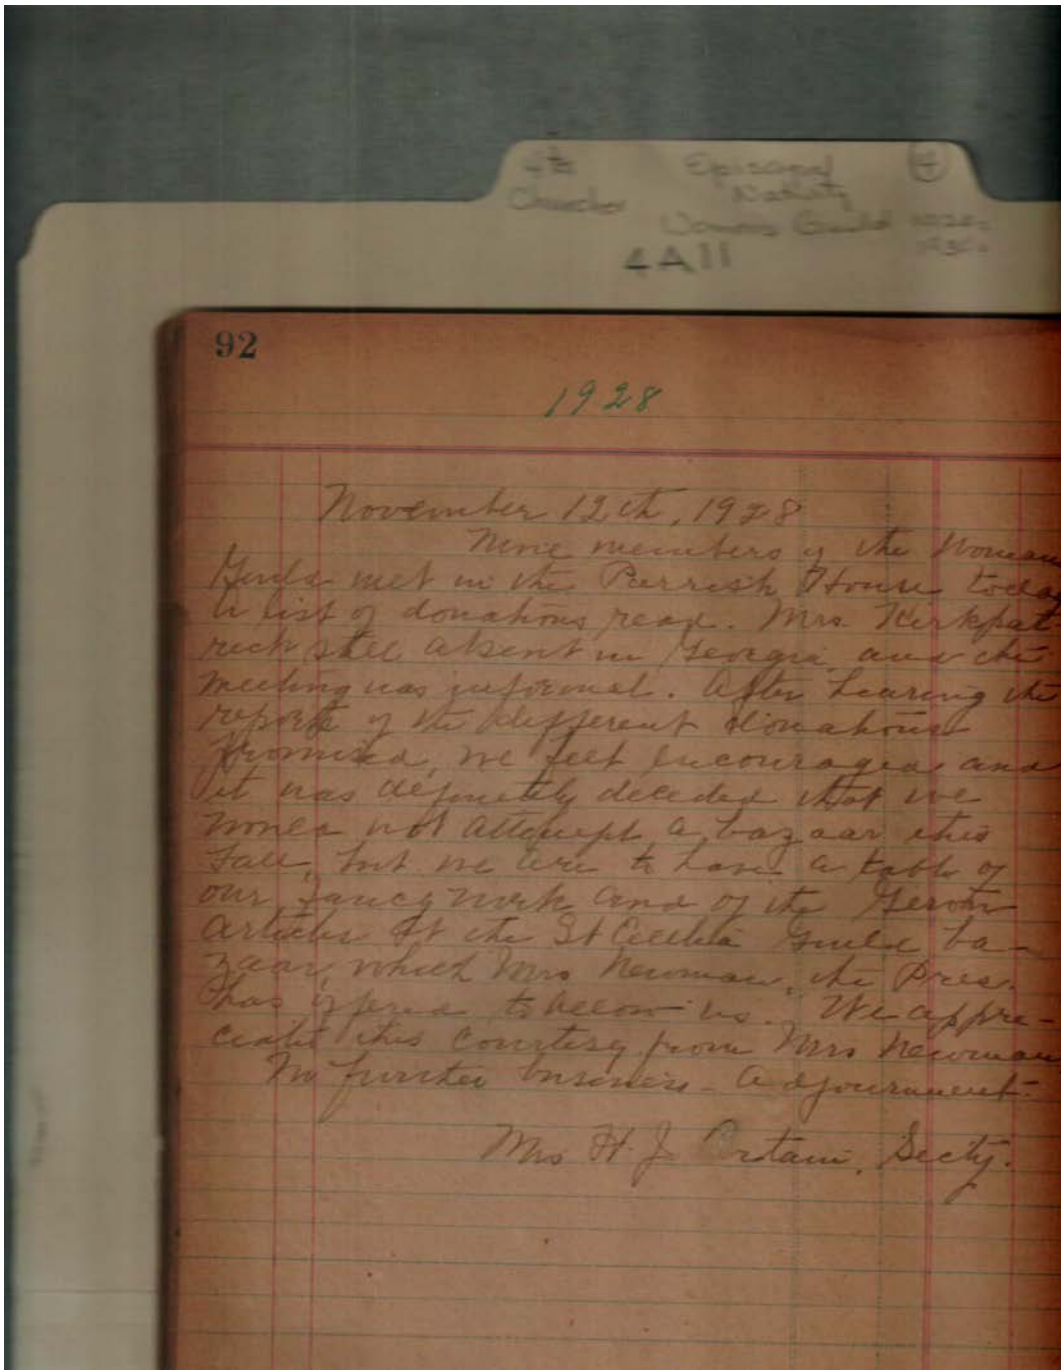 Episcopal
Church Nativity
Womans Guild
4A11
92
1928
November 12th, 1928
Nine members of the Woman
Guild met in the Parrish House today
A list of donations read. Mrs. Kirkpat
rick still absent in Georgia, and the
meeting was informal. After hearing the
reports of the different donations
promised, we felt encouraged and
it was definitely decided that we
would not attempt a bazaar this
Fall, but we are to have a table of
our fancy work and of the
articles at the St Cecelia Guild ba-
zaar, which Mrs Newman, the Pres.
has offered to allow us. We appre-
ciate this courtesy from Mrs Newman
No further business - Adjournment.
Mrs H. J. Secty.